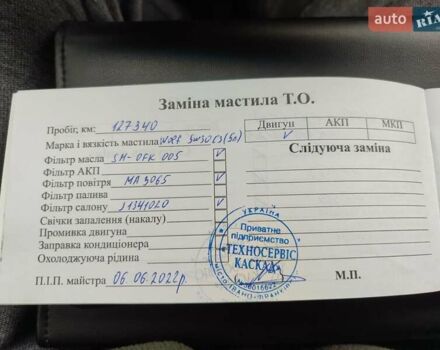 auto RIA
Заміна мастила Т.О.
Пробіг, км: 127340
Двигун АКП МКП
Марка і вязкість мастила 5w30 C3 (5л)
Слідуюча заміна
Фільтр масла SM-OFK 005
Фільтр АКП
Фільтр повітря MA 9065
Фільтр палива
Фільтр салону J1341020
Свічки запалення (накалу)
Промивка двигуна
Заправка кондиціонера
Охолоджуюча рідина
УКРАЇНА
Приватне
підприємство
"ТЕХНОСЕРВІС
КАСКАД"
П.І.П. майстра 06.06.2022р.
М.П.